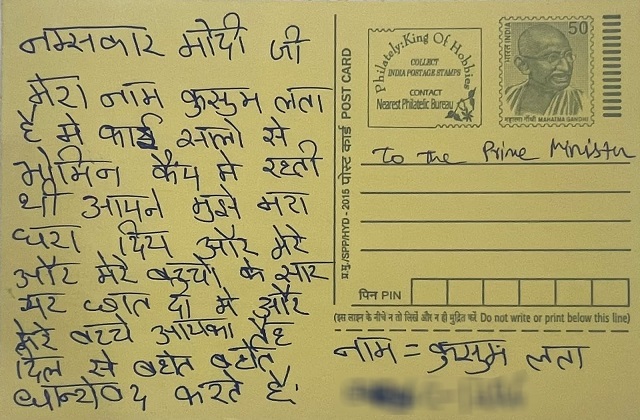 नमस्कार मोदी जी
मेरा नाम कुसुम लता
है मे काई सालो से
मोमिन कैंप मे रहती
थी आपने मुझे मेरा
धरा दिय और मेरे
और मेरे बच्चो के सार
सर छात दा मे और
मेरे बच्चे आपका तैह
दिल से बहोत बहोत
धान्येवद करते है।
Philately: King Of Hobbies
COLLECT
INDIA POSTAGE STAMPS
CONTACT
Nearest Philatelic Bureau
भारत INDIA
50
महात्मा गाँधी MAHATMA GANDHI
पोस्ट कार्ड POST CARD
प्र.मु./SPP/HYD - 2015
To the Prime Minister
पिन PIN
(इस लाइन के नीचे न तो लिखें और न ही मुद्रित करें Do not write or print below this line)
नाम = कुसुम लता